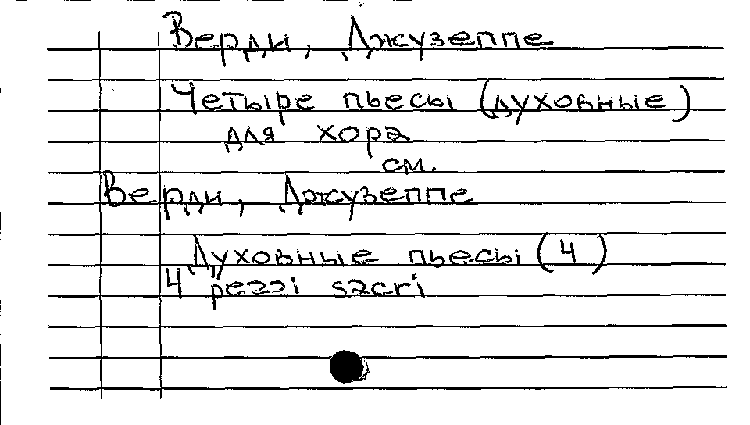 Верди, Джузеппе
Четыре пьесы (духовные)
для хора
см.
Верди, Джузеппе
Духовные пьесы (4)
4 pezzi sacri